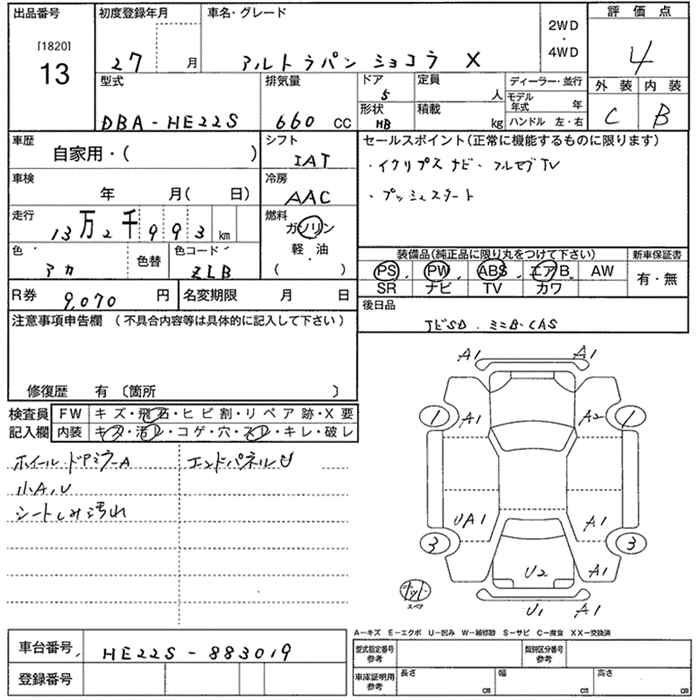 出品番号
[1820]
13
初度登録年月
27 月
車名・グレード
アルトラパン ショコラ X
2WD
・
4WD
評価点
4
外装 内装
C B
型式
DBA-HE22S
排気量
660 CC
ドア
5
形状
HB
定員
人
積載
kg
ディーラー・並行
モデル年式 年
ハンドル 左・右
車歴
自家用・( )
シフト
IAT
セールスポイント(正常に機能するものに限ります)
・イクリプスナビ・フルセグTV
・プッシュスタート
車検
年 月( 日)
冷房
AAC
走行
13万2千993 km
燃料
ガソリン
軽・油
・
( )
色
アカ
色替
色コード
ZLB
装備品(純正品に限り丸をつけて下さい)
PS PW ABS エアB AW
SR ナビ TV カワ
新車保証書
有・無
R券 9,070 円
名変期限 月 日
後日品
ナビSD.ミニB.CAS
注意事項申告欄(不具合内容等は具体的に記入して下さい)
修復歴 有〔箇所 〕
検査員記入欄
FW キズ・飛石・ヒビ割・リペア跡・X要
内装 キズ・汚れ・コゲ・穴・スレ・キレ・破レ
ホイール.ドアミラーA
エンドパネルU
小A,U
シートしみ汚れ
A1 A1
1 A1 A2 1
UA1 A1
3 3
U2 A1
スペア
U1 A1
A-キズ E-エクボ U-凹み W-補修跡 S-サビ C-腐食 XX-交換済
車台番号 HE22S-883019
登録番号
型式指定番号
参考
類別区分番号
参考
車庫証明用
参考
長さ cm
幅 cm
高さ cm